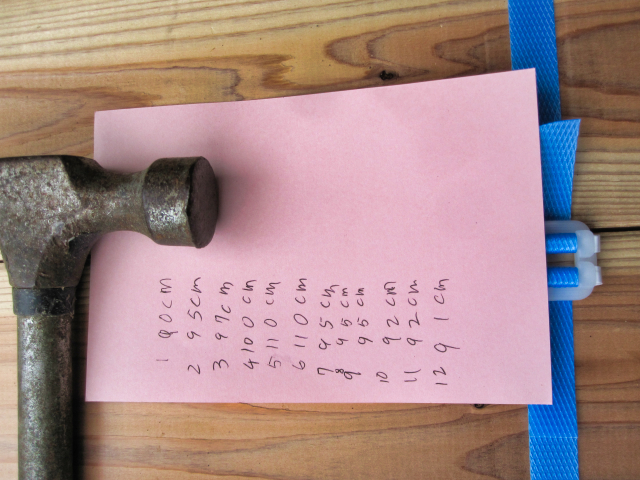 1 90cm
2 95cm
3 97cm
4 100cm
5 110cm
6 110cm
7 95cm
8 95cm
9 95cm
10 92cm
11 92cm
12 91cm